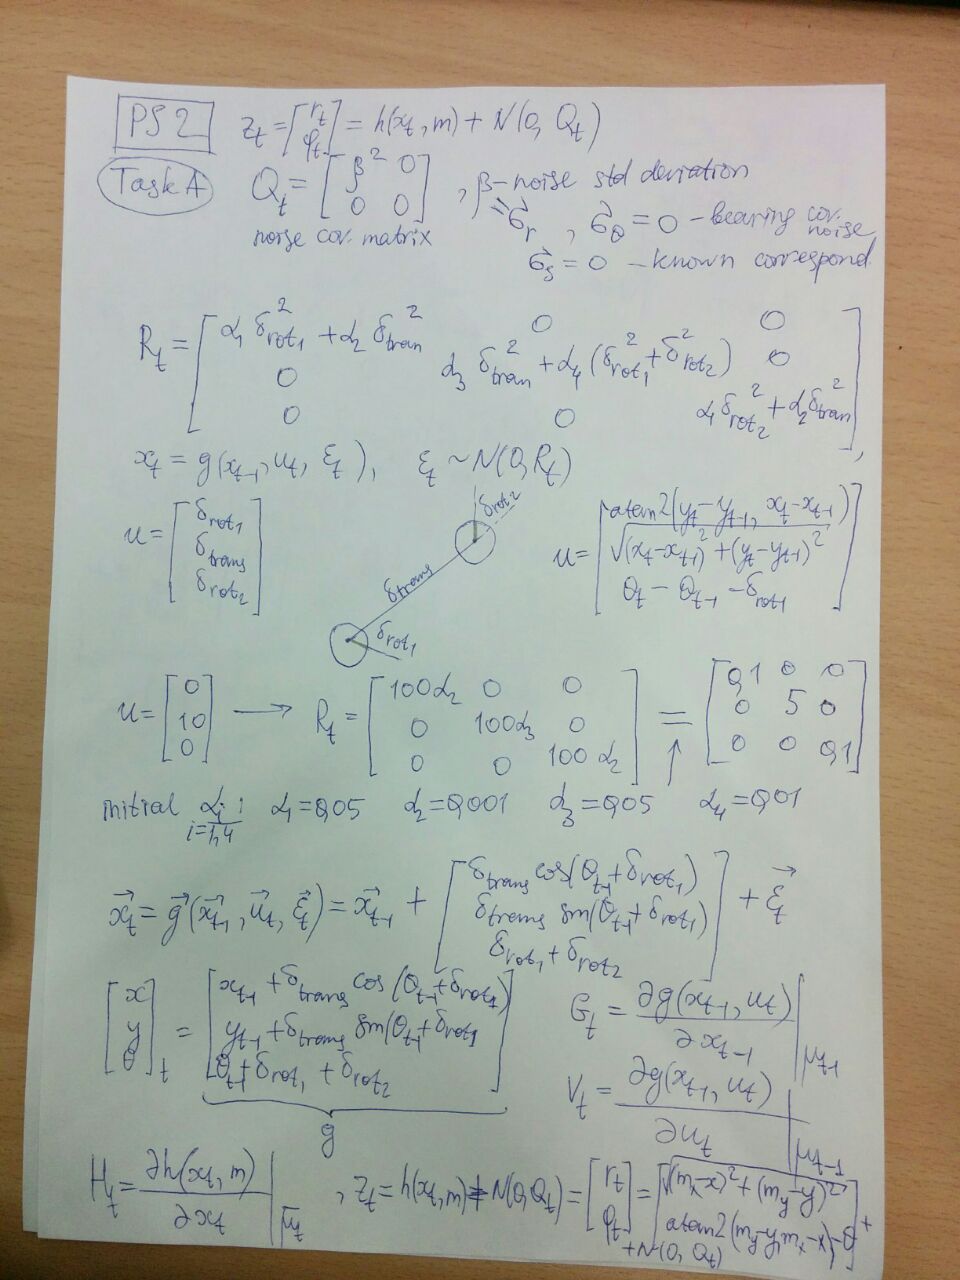 PS2
z_t = [r_t; φ_t] = h(x_t, m) + N(0, Q_t)
Task A
Q_t = [β² 0; 0 0], β - noise std deviation
noise cov. matrix
= σ_r, σ_θ = 0 - bearing cov. noise
σ_s = 0 - known correspond
R_t = [α₁ δ²_rot₁ + α₂ δ²_tran 0 0; 0 α₃ δ²_tran + α₄ (δ²_rot₁ + δ²_rot₂) 0; 0 0 α₁ δ²_rot₂ + α₂ δ²_tran],
x_t = g(x_t-1, u_t, ε_t), ε_t ~ N(0, R_t)
u = [δ_rot₁; δ_trans; δ_rot₂]
δ_rot₂
δ_trans
δ_rot₁
u = [atan2(y_t - y_t-1, x_t - x_t-1); √(x_t - x_t-1)² + (y_t - y_t-1)²; θ_t - θ_t-1 - δ_rot1]
u = [0; 10; 0] → R_t = [100α₂ 0 0; 0 100α₃ 0; 0 0 100α₂] = [0,1 0 0; 0 5 0; 0 0 0,1]
↑
initial α_i : α₁ = 0,05 α₂ = 0,001 α₃ = 0,05 α₄ = 0,01
i=1,4
x_t = g(x_t-1, u_t, ε_t) = x_t-1 + [δ_trans cos(θ_t-1 + δ_rot₁); δ_trans sin(θ_t-1 + δ_rot₁); δ_rot₁ + δ_rot₂] + ε_t
[x; y; θ]_t = [x_t-1 + δ_trans cos(θ_t-1 + δ_rot1); y_t-1 + δ_trans sin(θ_t-1 + δ_rot1; θ_t-1 + δ_rot₁ + δ_rot₂]
g
G_t = ∂g(x_t-1, u_t) / ∂x_t-1 | μ_t-1
V_t = ∂g(x_t-1, u_t) / ∂u_t | μ_t-1
H_t = ∂h(x_t, m) / ∂x_t | μ̄_t , z_t = h(x_t, m) + N(0, Q_t) = [r_t; φ_t] = [√(m_x - x)² + (m_y - y)²; atan2(m_y - y, m_x - x) - θ] +
+ N(0, Q_t)